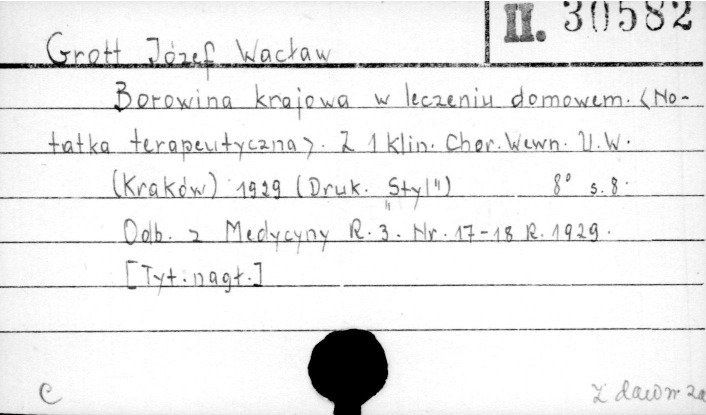 II. 30582
Grott Józef Wacław
Borowina krajowa w leczeniu domowem. <No-
tatka terapeutyczna>. Z 1 klin. Chor. Wewn. U.W.
(Kraków) 1929 (Druk. "Styl") 8° s. 8.
Odb. z Medycyny R. 3. Nr. 17-18 R. 1929.
[Tyt. nagł.]
C
Z dawn za